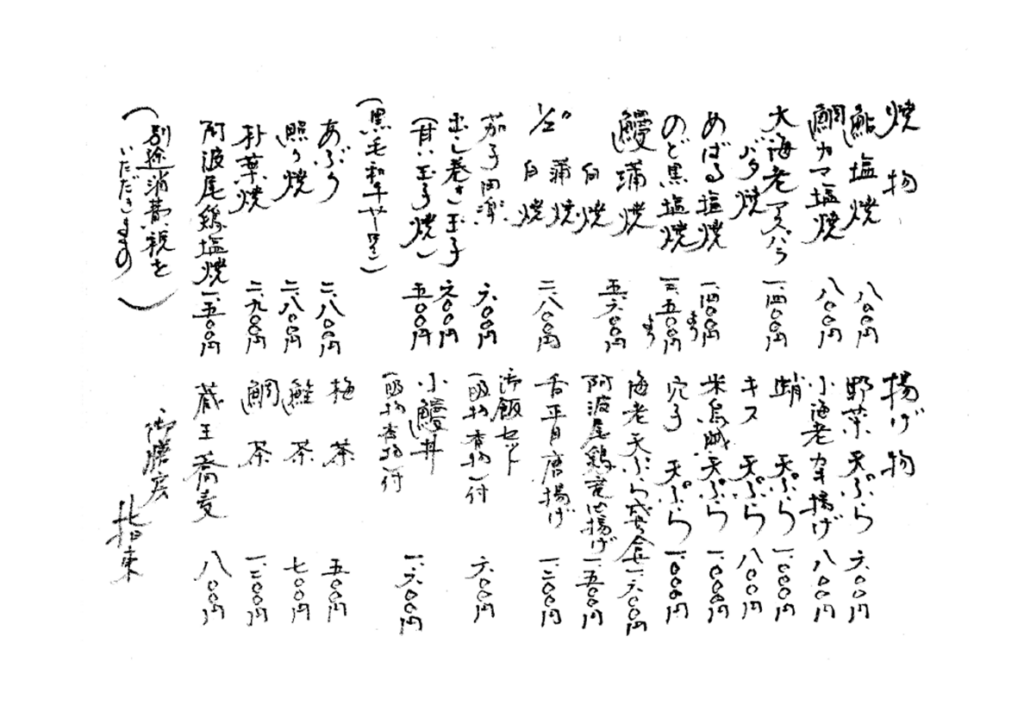 焼物
鮎塩焼 八〇〇円
鯛カマ塩焼 八〇〇円
大海老アスパラ
バタ焼 一、四〇〇円
めばる塩焼 一、四〇〇円
のど黒塩焼 三、五〇〇円より
鰻蒲焼
白焼 五、六〇〇円
1/2 蒲焼
白焼 二、八〇〇円
茄子田楽 六〇〇円
出し巻き玉子 六〇〇円
(甘い玉子焼) 五〇〇円
(黒毛和牛サーロイン)
あぶり 二、八〇〇円
照り焼 二、八〇〇円
朴葉焼 二、九〇〇円
阿波尾鶏塩焼 一、五〇〇円
(別途消費税を
いただきます)
揚げ物
野菜天ぷら 六〇〇円
小海老かき揚げ 八〇〇円
蛸天ぷら 一、〇〇〇円
キス天ぷら 八〇〇円
米烏賊天ぷら 一、〇〇〇円
穴子天ぷら 一、〇〇〇円
海老天ぷら盛合 一、六〇〇円
阿波尾鶏竜田揚げ 一、五〇〇円
舌平目唐揚げ 一、二〇〇円
御飯セット
(吸物香物)付 六〇〇円
小鰻丼
(吸物香物)付 一、六〇〇円
梅茶 五〇〇円
鮭茶 七〇〇円
鯛茶 一、二〇〇円
蔵王蕎麦 八〇〇円
御膳房